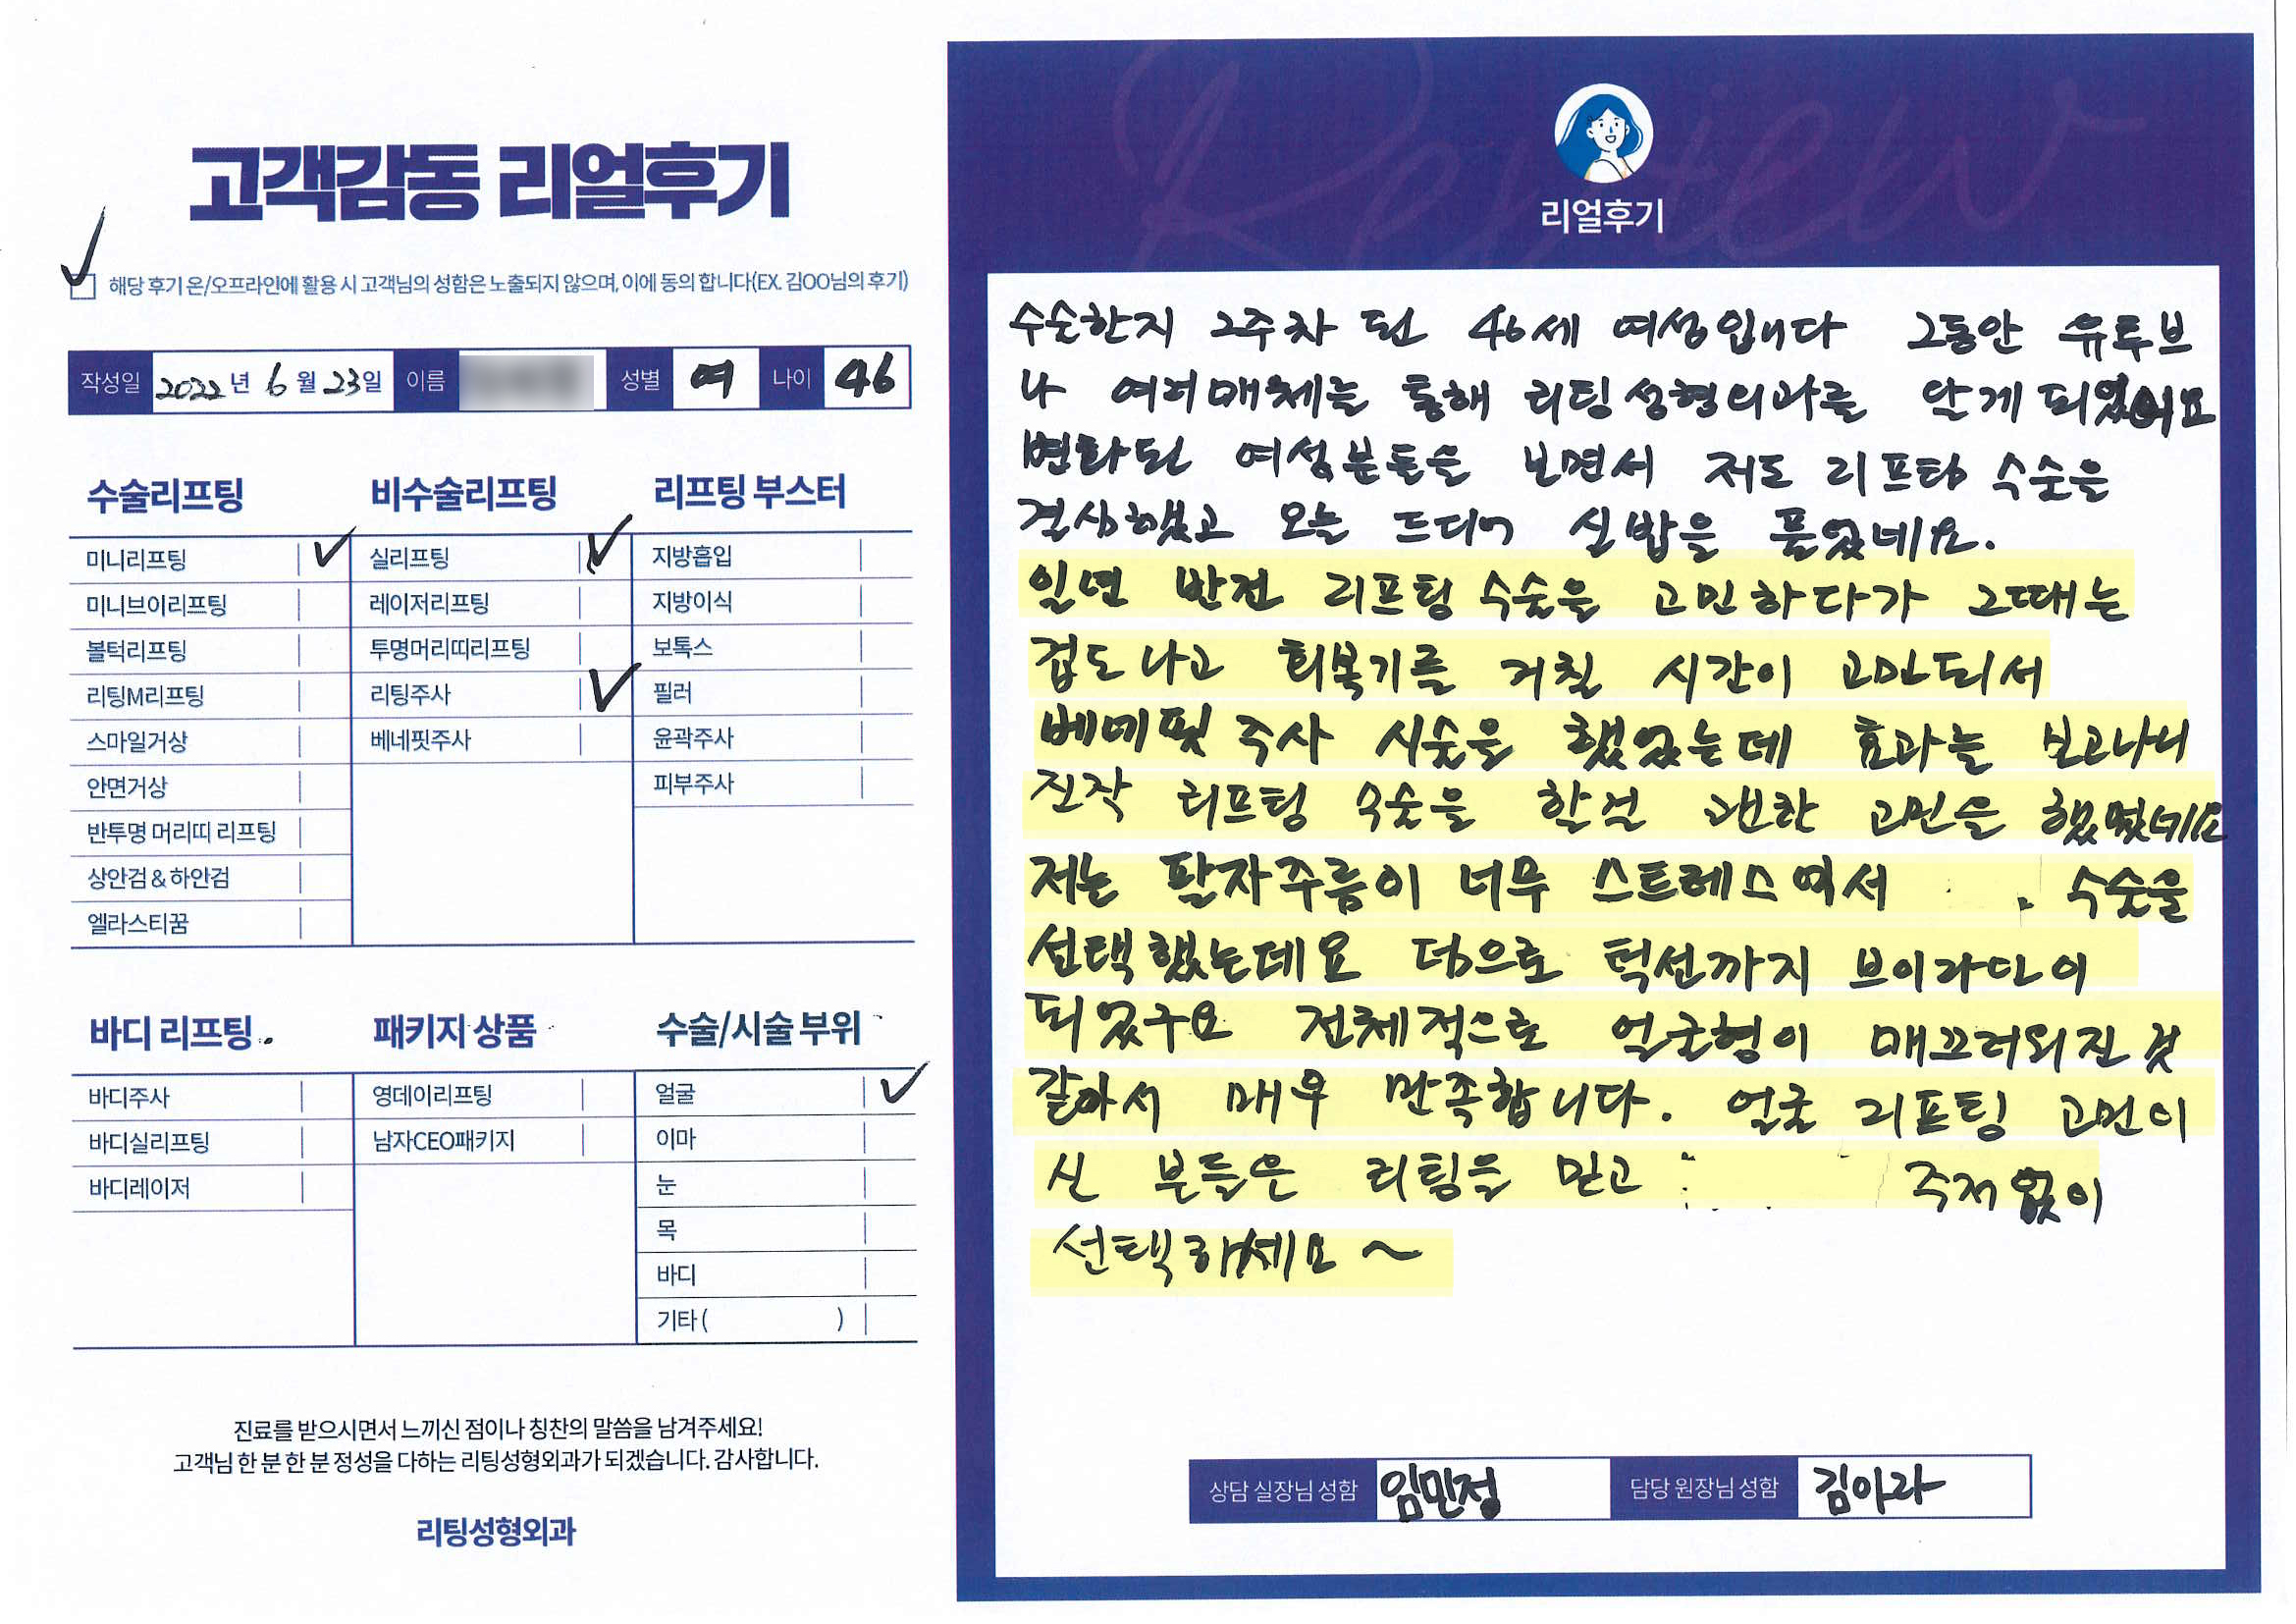 고객감동 리얼후기
해당 후기 온/오프라인에 활용 시 고객님의 성함은 노출되지 않으며, 이에 동의 합니다(EX. 김OO님의 후기)
작성일 2022년 6월 23일 이름 성별 여 나이 46
수술리프팅
미니리프팅
미니브이리프팅
볼턱리프팅
리팅M리프팅
스마일거상
안면거상
반투명 머리띠 리프팅
상안검 & 하안검
엘라스티꿈
비수술리프팅
실리프팅
레이저리프팅
투명머리띠리프팅
리팅주사
베네핏주사
리프팅 부스터
지방흡입
지방이식
보톡스
필러
윤곽주사
피부주사
바디 리프팅
바디주사
바디실리프팅
바디레이저
패키지 상품
영데이리프팅
남자CEO패키지
수술/시술 부위
얼굴
이마
눈
목
바디
기타 ( )
진료를 받으시면서 느끼신 점이나 칭찬의 말씀을 남겨주세요!
고객님 한 분 한 분 정성을 다하는 리팅성형외과가 되겠습니다. 감사합니다.
리팅성형외과
Review
리얼후기
수술한지 2주차 된 46세 여성입니다 그동안 유튜브
나 여러매체를 통해 리팅성형외과를 알게 되었어요
변화된 여성분들을 보면서 저도 리프팅 수술을
결심했고 오늘 드디어 실밥을 풀었네요.
일년 반전 리프팅 수술을 고민하다가 그때는
겁도나고 회복기를 거칠 시간이 고민되서
베네핏 주사 시술을 했었는데 효과를 보고나니
진작 리프팅 수술을 할걸 괜한 고민을 했었네요
저는 팔자주름이 너무 스트레스여서 수술을
선택했는데요 덤으로 턱선까지 브이라인이
되었구요 전체적으로 얼굴형이 매끄러워진 것
같아서 매우 만족합니다. 얼굴 리프팅 고민이
신 분들은 리팅을 믿고 주저없이
선택하세요~
상담 실장님 성함 임민정 담당 원장님 성함 김아라